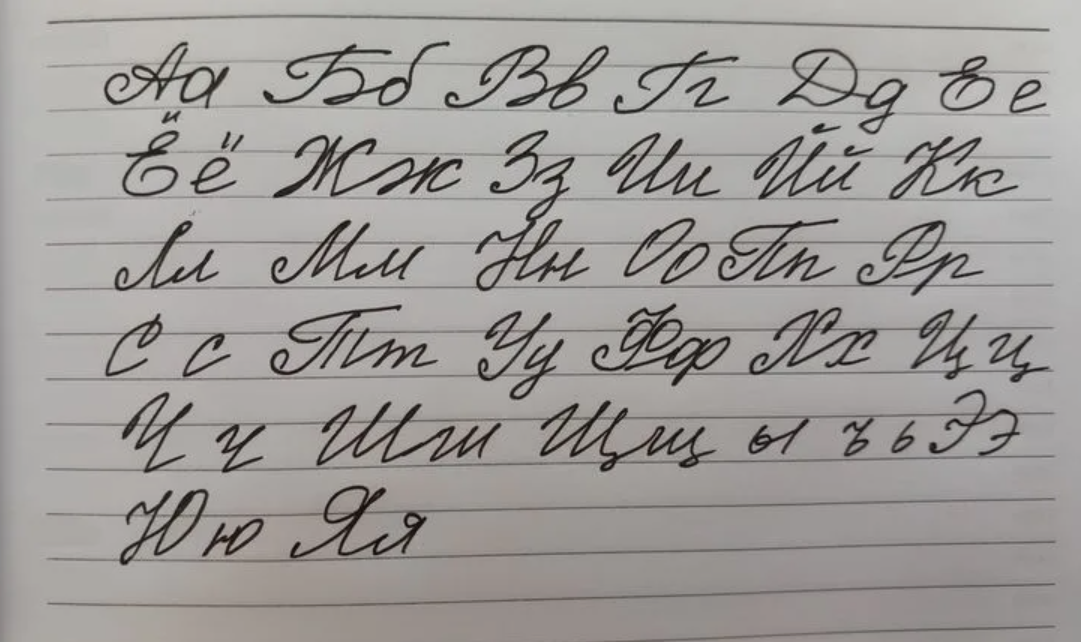 Аа Бб Вв Гг Дд Ее
Ёё Жж Зз Ии Йй Кк
Лл Мм Нн Оо Пп Рр
С с Тт Уу Фф Хх Ц ц
Ч ч Шш Щщ ы ъ ь Ээ
Юю Яя